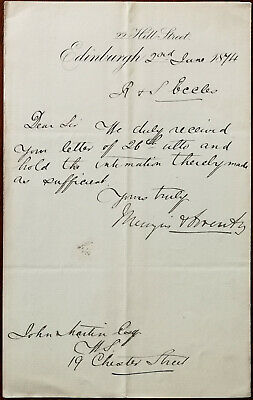 22 Hill Street
Edinburgh 2nd June 1874
R & S Eccles
Dear Sir We duly received
your letter of 26th ulto and
hold the intimation thereby made
as sufficient.
Yours truly
John Martin Esq.
W.S.
19 Chester Street